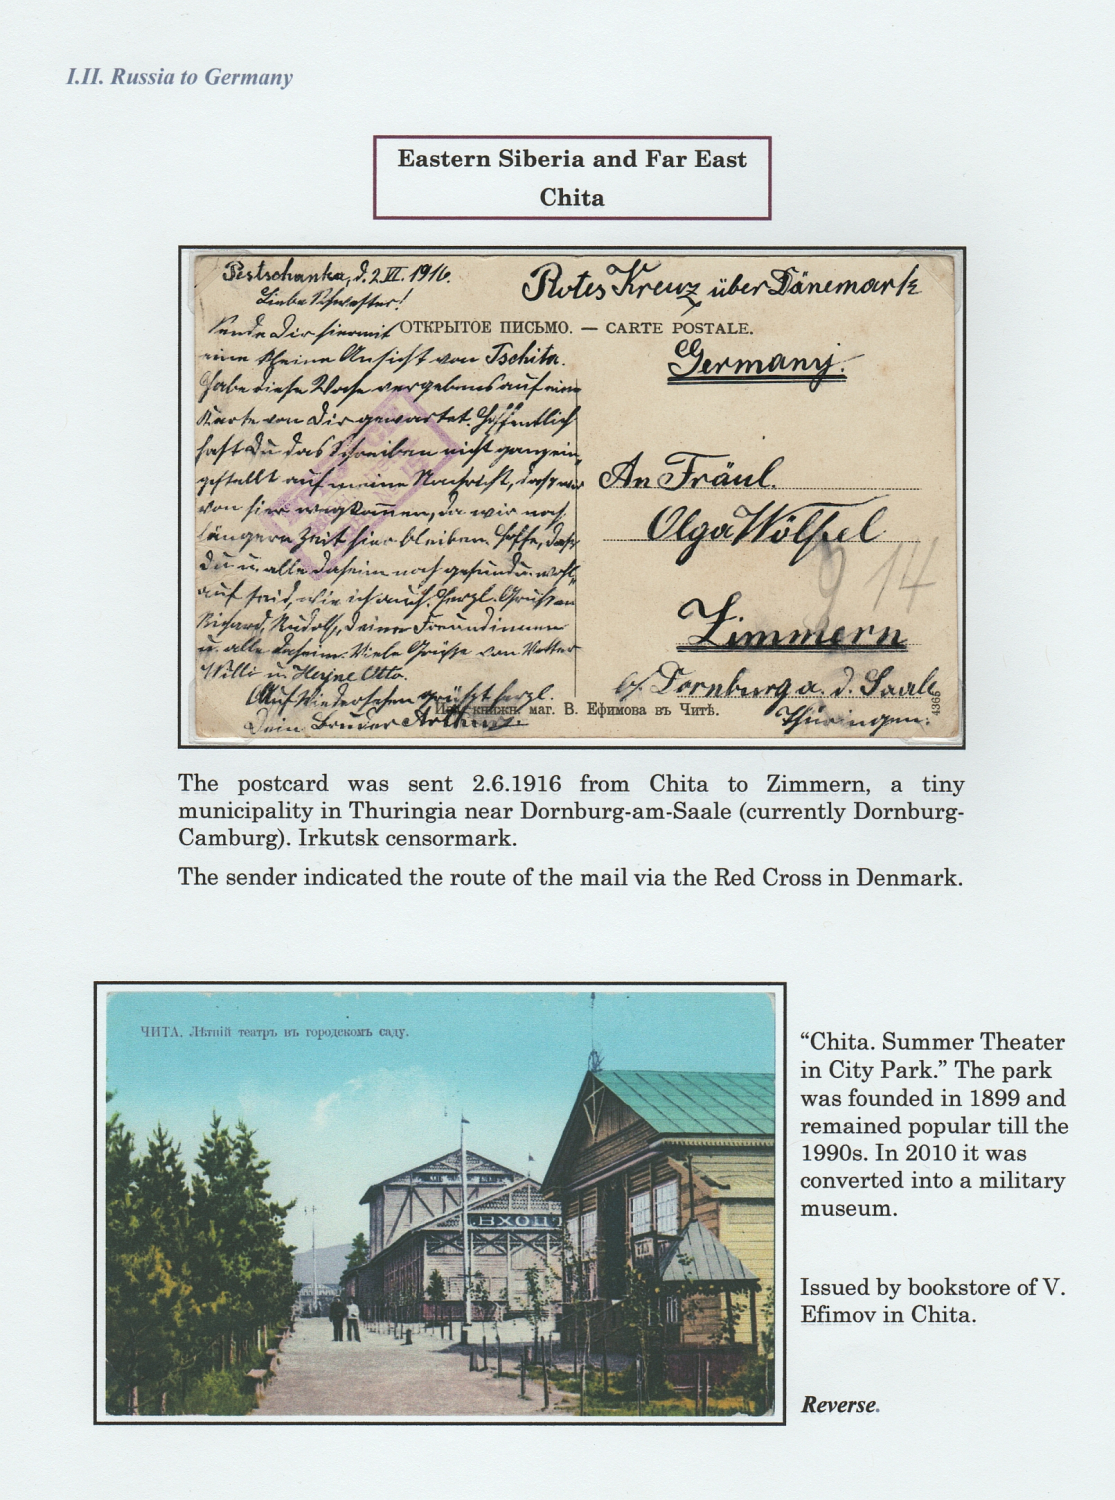 I.II. Russia to Germany
Eastern Siberia and Far East
Chita
Pestschanka, d. 2.VI. 1916.
Liebe Schwester!
Sende Dir hiermit
eine kleine Ansicht von Tschita.
Habe diese Woche vergebens auf eine
Karte von Dir gewartet. Hoffentlich
hast Du das Schreiben nicht ganz ein-
gestellt auf meine Nachricht, dass wir
von hier wegkommen, da wir noch
längere Zeit hier bleiben. Hoffe, dass
Du u. alle daheim noch gesund u. wohl-
auf seid, wie ich auch. Herzl. Grüße an
Richard, Rudolf, Deine Freundinnen
u. alle daheim. Viele Grüsse von Vetter
Willi u. Heyne Otto.
Auf Wiedersehen grüsst herzl.
Dein Bruder Arthur.
Rotes Kreuz über Dänemark
ОТКРЫТОЕ ПИСЬМО. — CARTE POSTALE.
Germany.
An Fräul.
Olga Wölfel
9 14
Zimmern
b/ Dornburg a. d. Saale
Thüringen.
Изд. книжн. маг. В. Ефимова въ Читѣ.
4365
The postcard was sent 2.6.1916 from Chita to Zimmern, a tiny
municipality in Thuringia near Dornburg-am-Saale (currently Dornburg-
Camburg). Irkutsk censormark.
The sender indicated the route of the mail via the Red Cross in Denmark.
ЧИТА. Лѣтній театръ въ городскомъ саду.
ВХОДЪ
“Chita. Summer Theater
in City Park.” The park
was founded in 1899 and
remained popular till the
1990s. In 2010 it was
converted into a military
museum.
Issued by bookstore of V.
Efimov in Chita.
Reverse.